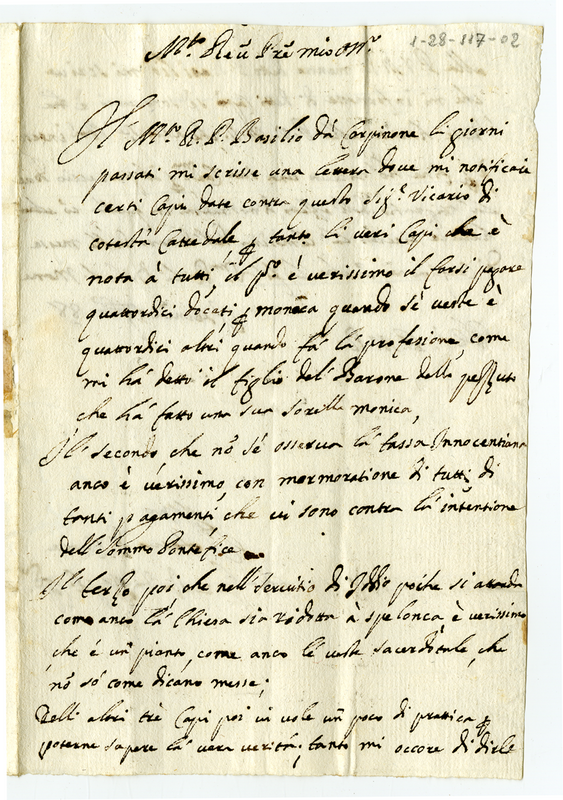 1-28-117-02
M.to Reu Pre mio oss.
Il M.to R. P. Basilio da Carpinone li giorni
passati mi scrisse una lettera dove mi notificaie
certi Capi date contra questo Sig.r Vicario di
cotesta Catredale, tanto li veri Capi che è
nota à tutti, il p.o è verissimo il farsi pagare
quattordici docati monàca quando sè veste è
quattordici altri quando fà là professione, come
mi hà detto il figlio del Barone delle
che hà fatto una sua sorella monica,
Il secondo che nõ sé osserva là tassa Innocentiana
anco è verissimo, con mormoratione di tutti di
tanti pagamenti, che vi sono contra là intentione
dell Sommo Pontefice
Il terzo poi che nell servitio di Iddio poche si
como anco là Chiesa sia ridotta à spelonca, è verissimo
che è un pianto, come anco le veste sacerdotale, che
nõ sò come dicano messe;
Delli altri trè Capi poi vi vole un poco di prattica
poterne sapere là vera verità, tanto mi occore di dirle